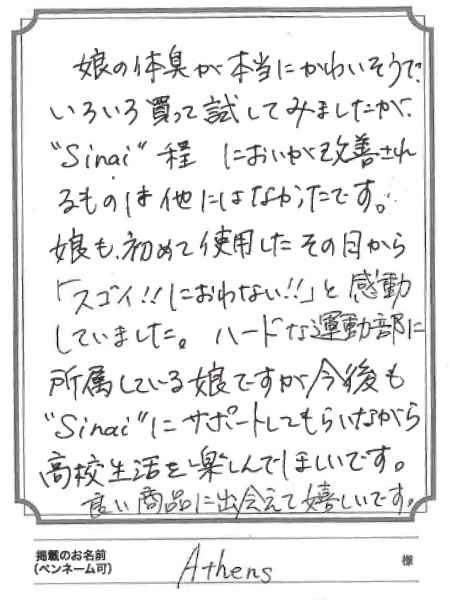 娘の体臭が本当にかわいそうで、
いろいろ買って試してみましたが、
"Sinai"程 においが改善され
るものは他にはなかったです。
娘も、初めて使用したその日から
「スゴイ!!におわない!!」と感動
していました。ハードな運動部に
所属している娘ですが今後も
"Sinai"にサポートしてもらいながら
高校生活を楽しんでほしいです。
良い商品に出会えて嬉しいです。
掲載のお名前
(ペンネーム可) Athens 様